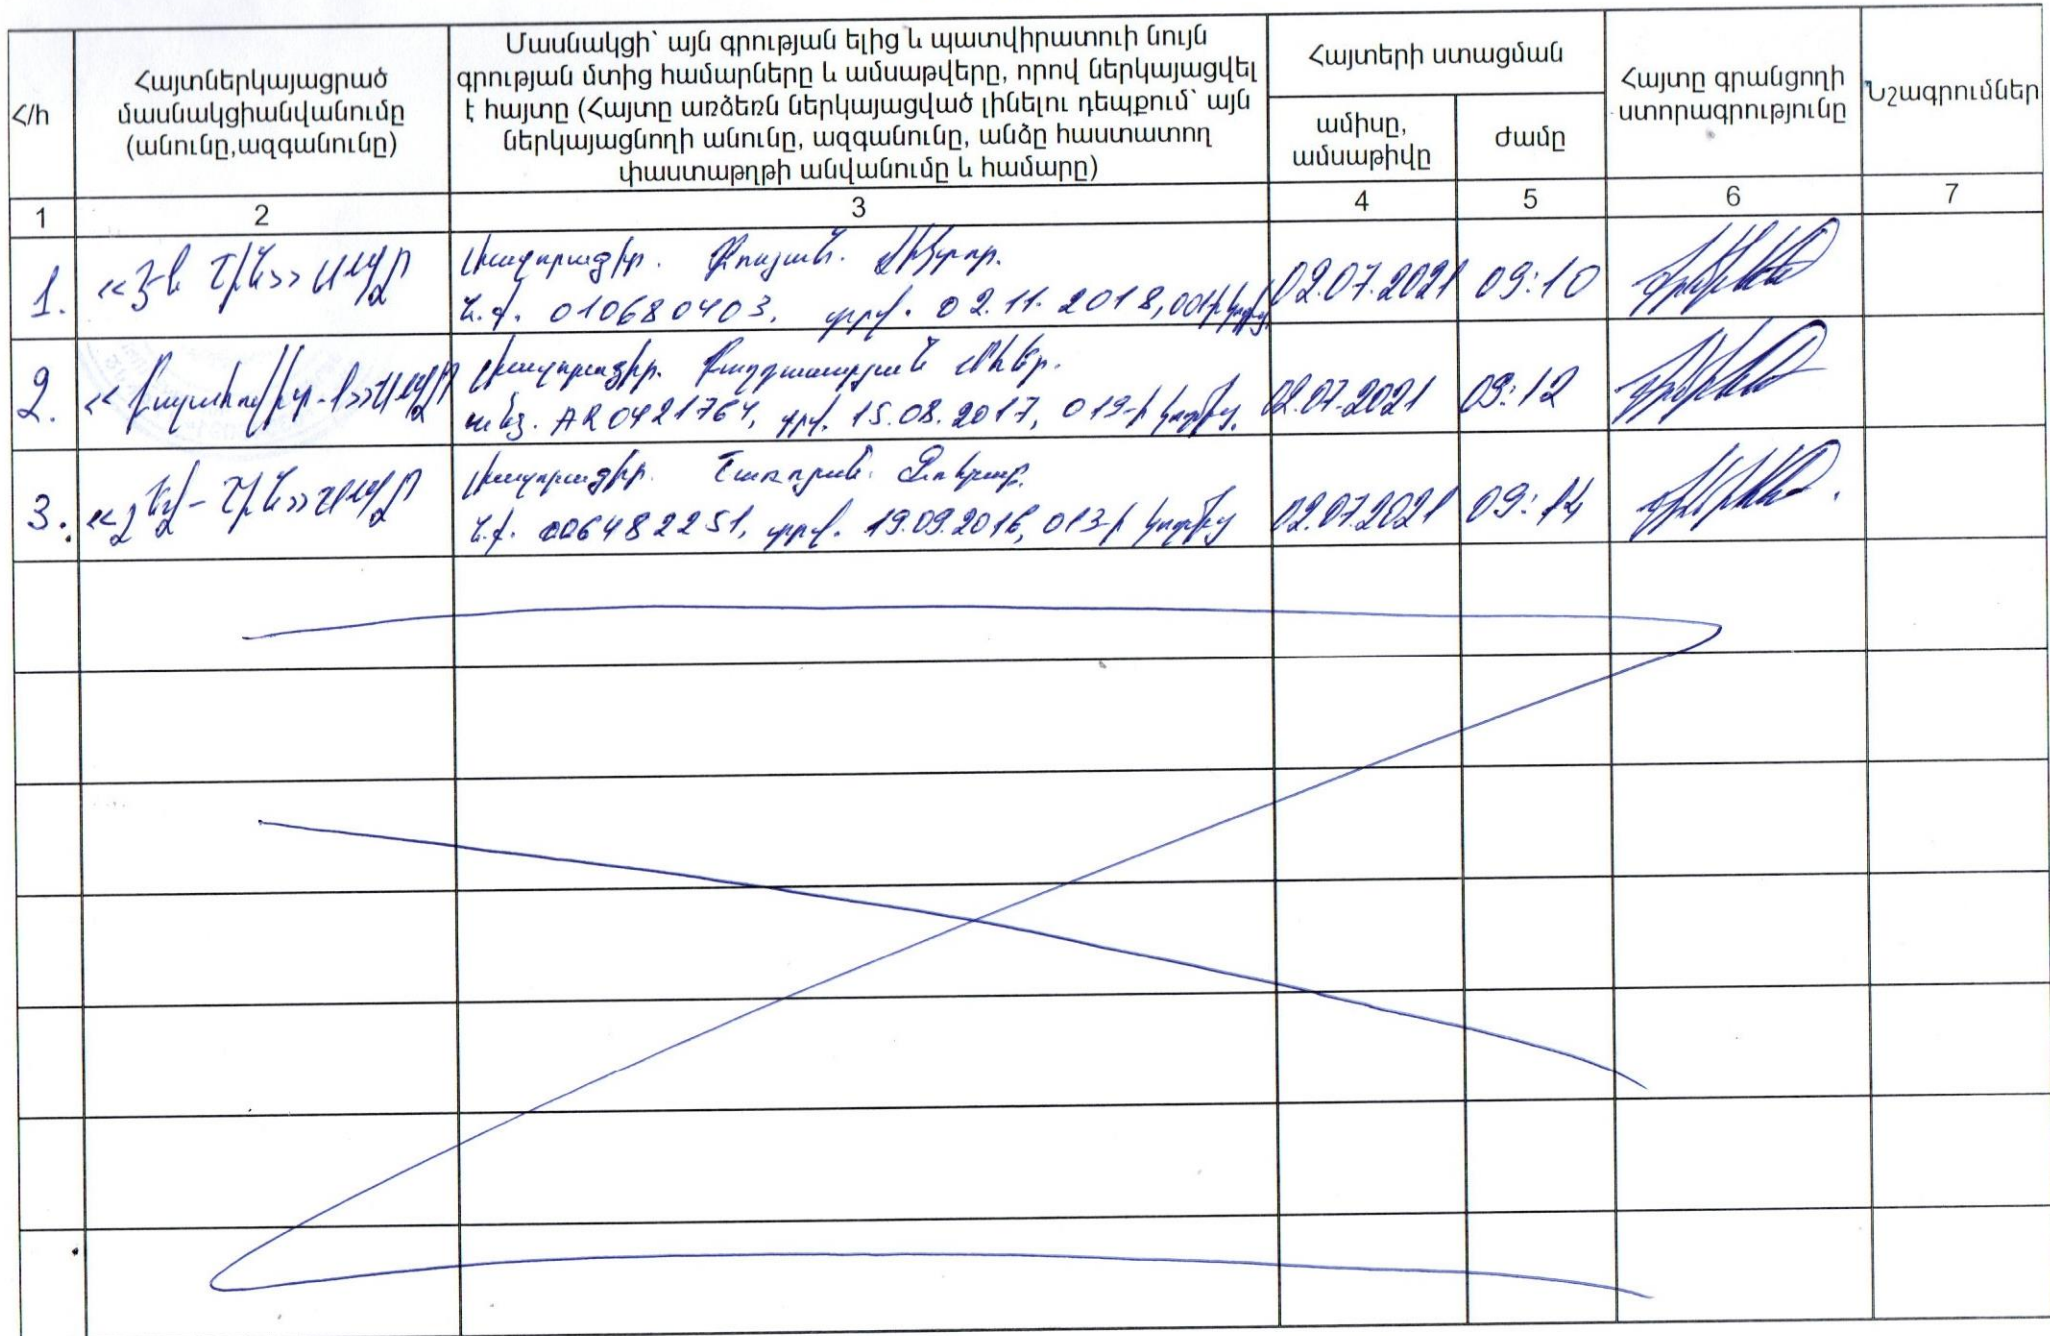 Հ/h
Հայտներկայացրած
մասնակցիանվանումը
(անունը,ազգանունը)
Մասնակցի` այն գրության ելից և պատվիրատուի նույն
գրության մտից համարները և ամսաթվերը, որով ներկայացվել
է հայտը (Հայտը առձեռն ներկայացված լինելու դեպքում` այն
ներկայացնողի անունը, ազգանունը, անձը հաստատող
փաստաթղթի անվանումը և համարը)
Հայտերի ստացման
ամիսը,
ամսաթիվը
ժամը
Հայտը գրանցողի
ստորագրությունը
Նշագրումներ
1 2 3 4 5 6 7
1. ՍՊԸ
լիազորագիր.
ն.ք. 010680403, տրվ. 02.11.2018, 001-ի կողմից
02.07.2021 09:10
2. ՍՊԸ
լիազորագիր. Բաղդասարյան Մհեր.
անձ. AR0421764, տրվ. 15.08.2017, 019-ի կողմից
02.07.2021 09:12
3. ՍՊԸ
լիազորագիր.
ն.ք. 006482251, տրվ. 19.09.2016, 013-ի կողմից
02.07.2021 09:14